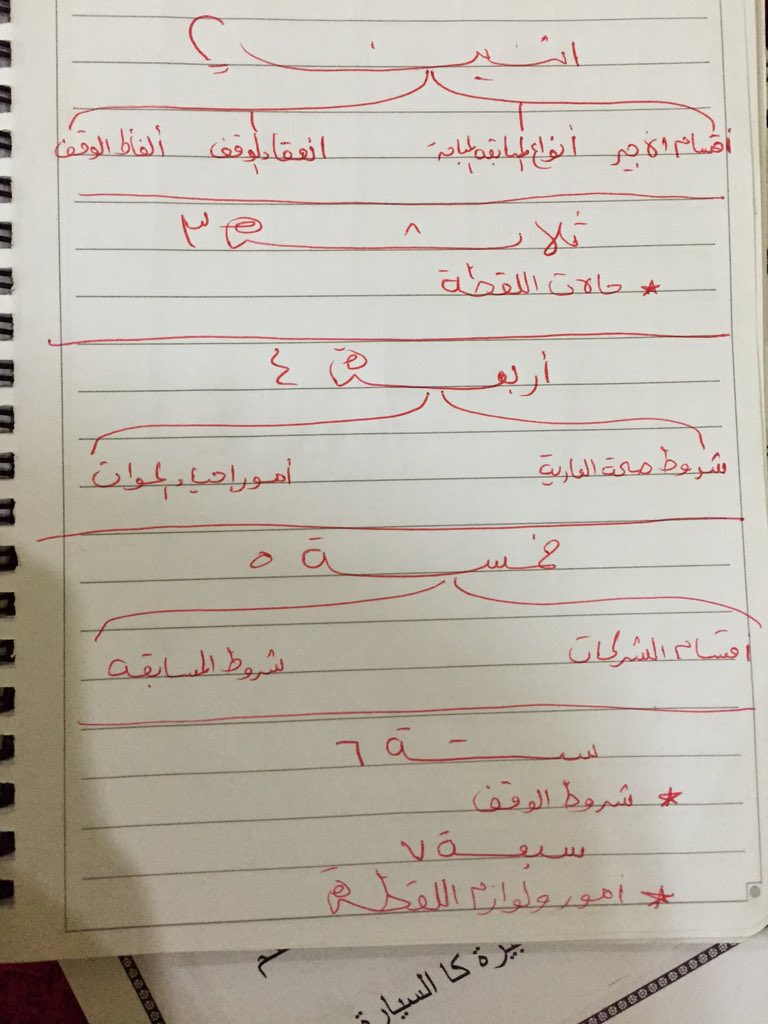 اثنين ٢
أقسام الأجير أنواع المسابقه المباحة انعقاد الوقف ألفاظ الوقف
ثلاثة ٣
★ حالات اللقطة
أربعة ٤
شروط صحة العارية أمور إحياء الموات
خمسة ٥
اقسام الشركات شروط المسابقه
ستة ٦
★ شروط الوقف
سبعة ٧
★ أمور ولوازم اللقطة
بيرة كا السيارة